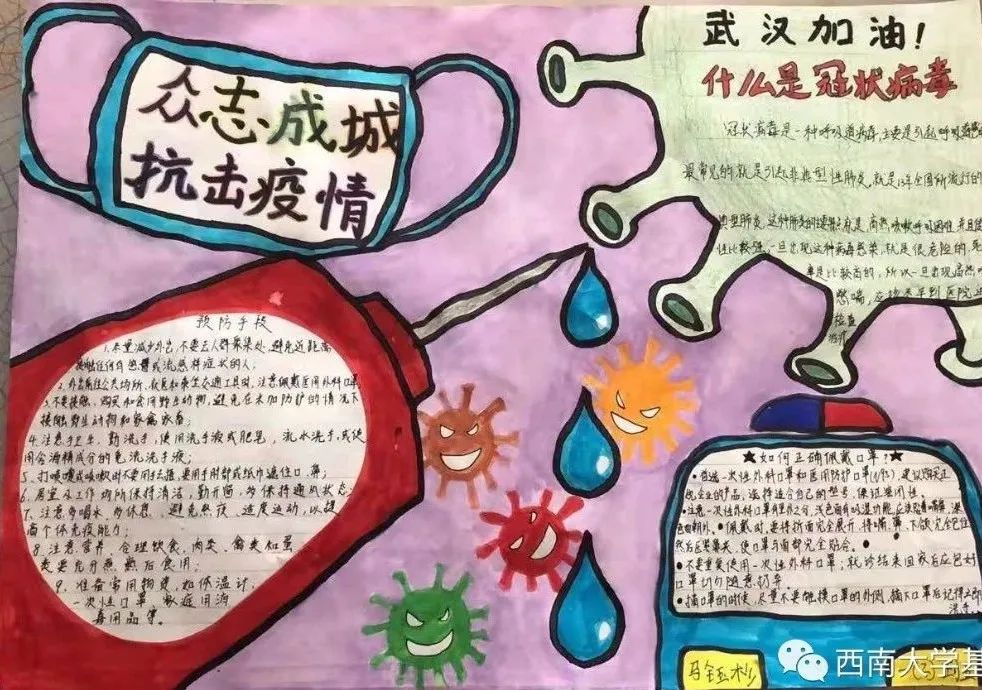 众志成城
抗击疫情
武汉加油！
什么是冠状病毒
冠状病毒是一种呼吸道病毒,主要是引起呼吸道感
最常见的就是引起非典型性肺炎,就是03年全国所流行的
典型肺炎,这种肺炎的,就是高热,咳嗽呼吸困难,并且
性比较强,一旦出现这种病毒感染,就是很危险的,死
率是比较高的,所以一旦出现高热
憋喘,应该尽早到医院
检查
治疗
预防手段
1.尽量减少外出,不要去人群聚集处,避免近距离
接触任何有感冒或流感样症状的人;
2.外出前往公共场所,就医和乘坐公通工具时,注意佩戴医用外科口罩
3.不要接触、购买和食用野生动物,避免在未加防护的情况下
接触野生动物和家禽家畜;
4.注意手卫生,勤洗手,使用洗手液或肥皂,流水洗手,或使
用含酒精成分的免洗洗手液;
5.打喷嚏或咳嗽时不要用手捂,要用手肘部或纸巾遮住口鼻;
6.居室及工作场所保持清洁,勤开窗,多保持通风状态
7.注意多喝水,多休息,避免熬夜,适度运动,以提
高个体免疫能力;
8.注意营养,合理饮食,肉类、禽类和蛋
类要充分煮熟后食用;
9.准备常用物资,如体温计,
一次性口罩、家庭用消
毒用品等。
★如何正确佩戴口罩?★
•首选一次性外科口罩和医用防护口罩(N95),建议购买正
规企业的产品,选择适合自己的型号,保证密闭性。
•注意一次性外科口罩有里外之分,浅色面有吸湿功能,应该贴着嘴鼻,深
色面朝外。•佩戴时,要将折面完全展开,将嘴、鼻、下颌完全包住,
然后压紧鼻夹,使口罩与面部完全贴合。•
•不要重复使用一次性外科口罩;就诊结束回家后应包好
口罩切勿随意扔弃
•摘口罩的时候,尽量不要触摸口罩的外侧,摘下口罩后记得立即
洗手。
马钰
西南大学基